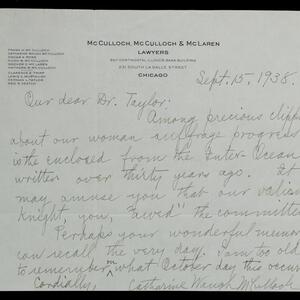 McCulloch, McCulloch & McLaren
LAWYERS
231 SOUTH LA SALLE STREET
CHICAGO
FRANK H. McCULLOCH
CATHARINE WAUGH McCULLOCH
HUGH W. McCULLOCH
Sept. 15, 1938.
Our dear Dr. Taylor:
Among precious clipp
about our woman suffrage progress
is the enclosed from the Inter-Ocean
written over thirty years ago. It
may amuse you that our valian
Knight, you, "awed" the committe
Perhaps your wonderful memor
can recall the very day. I am too old
to remember on what October day this occurr
Cordially, Catharine Waugh McCulloch